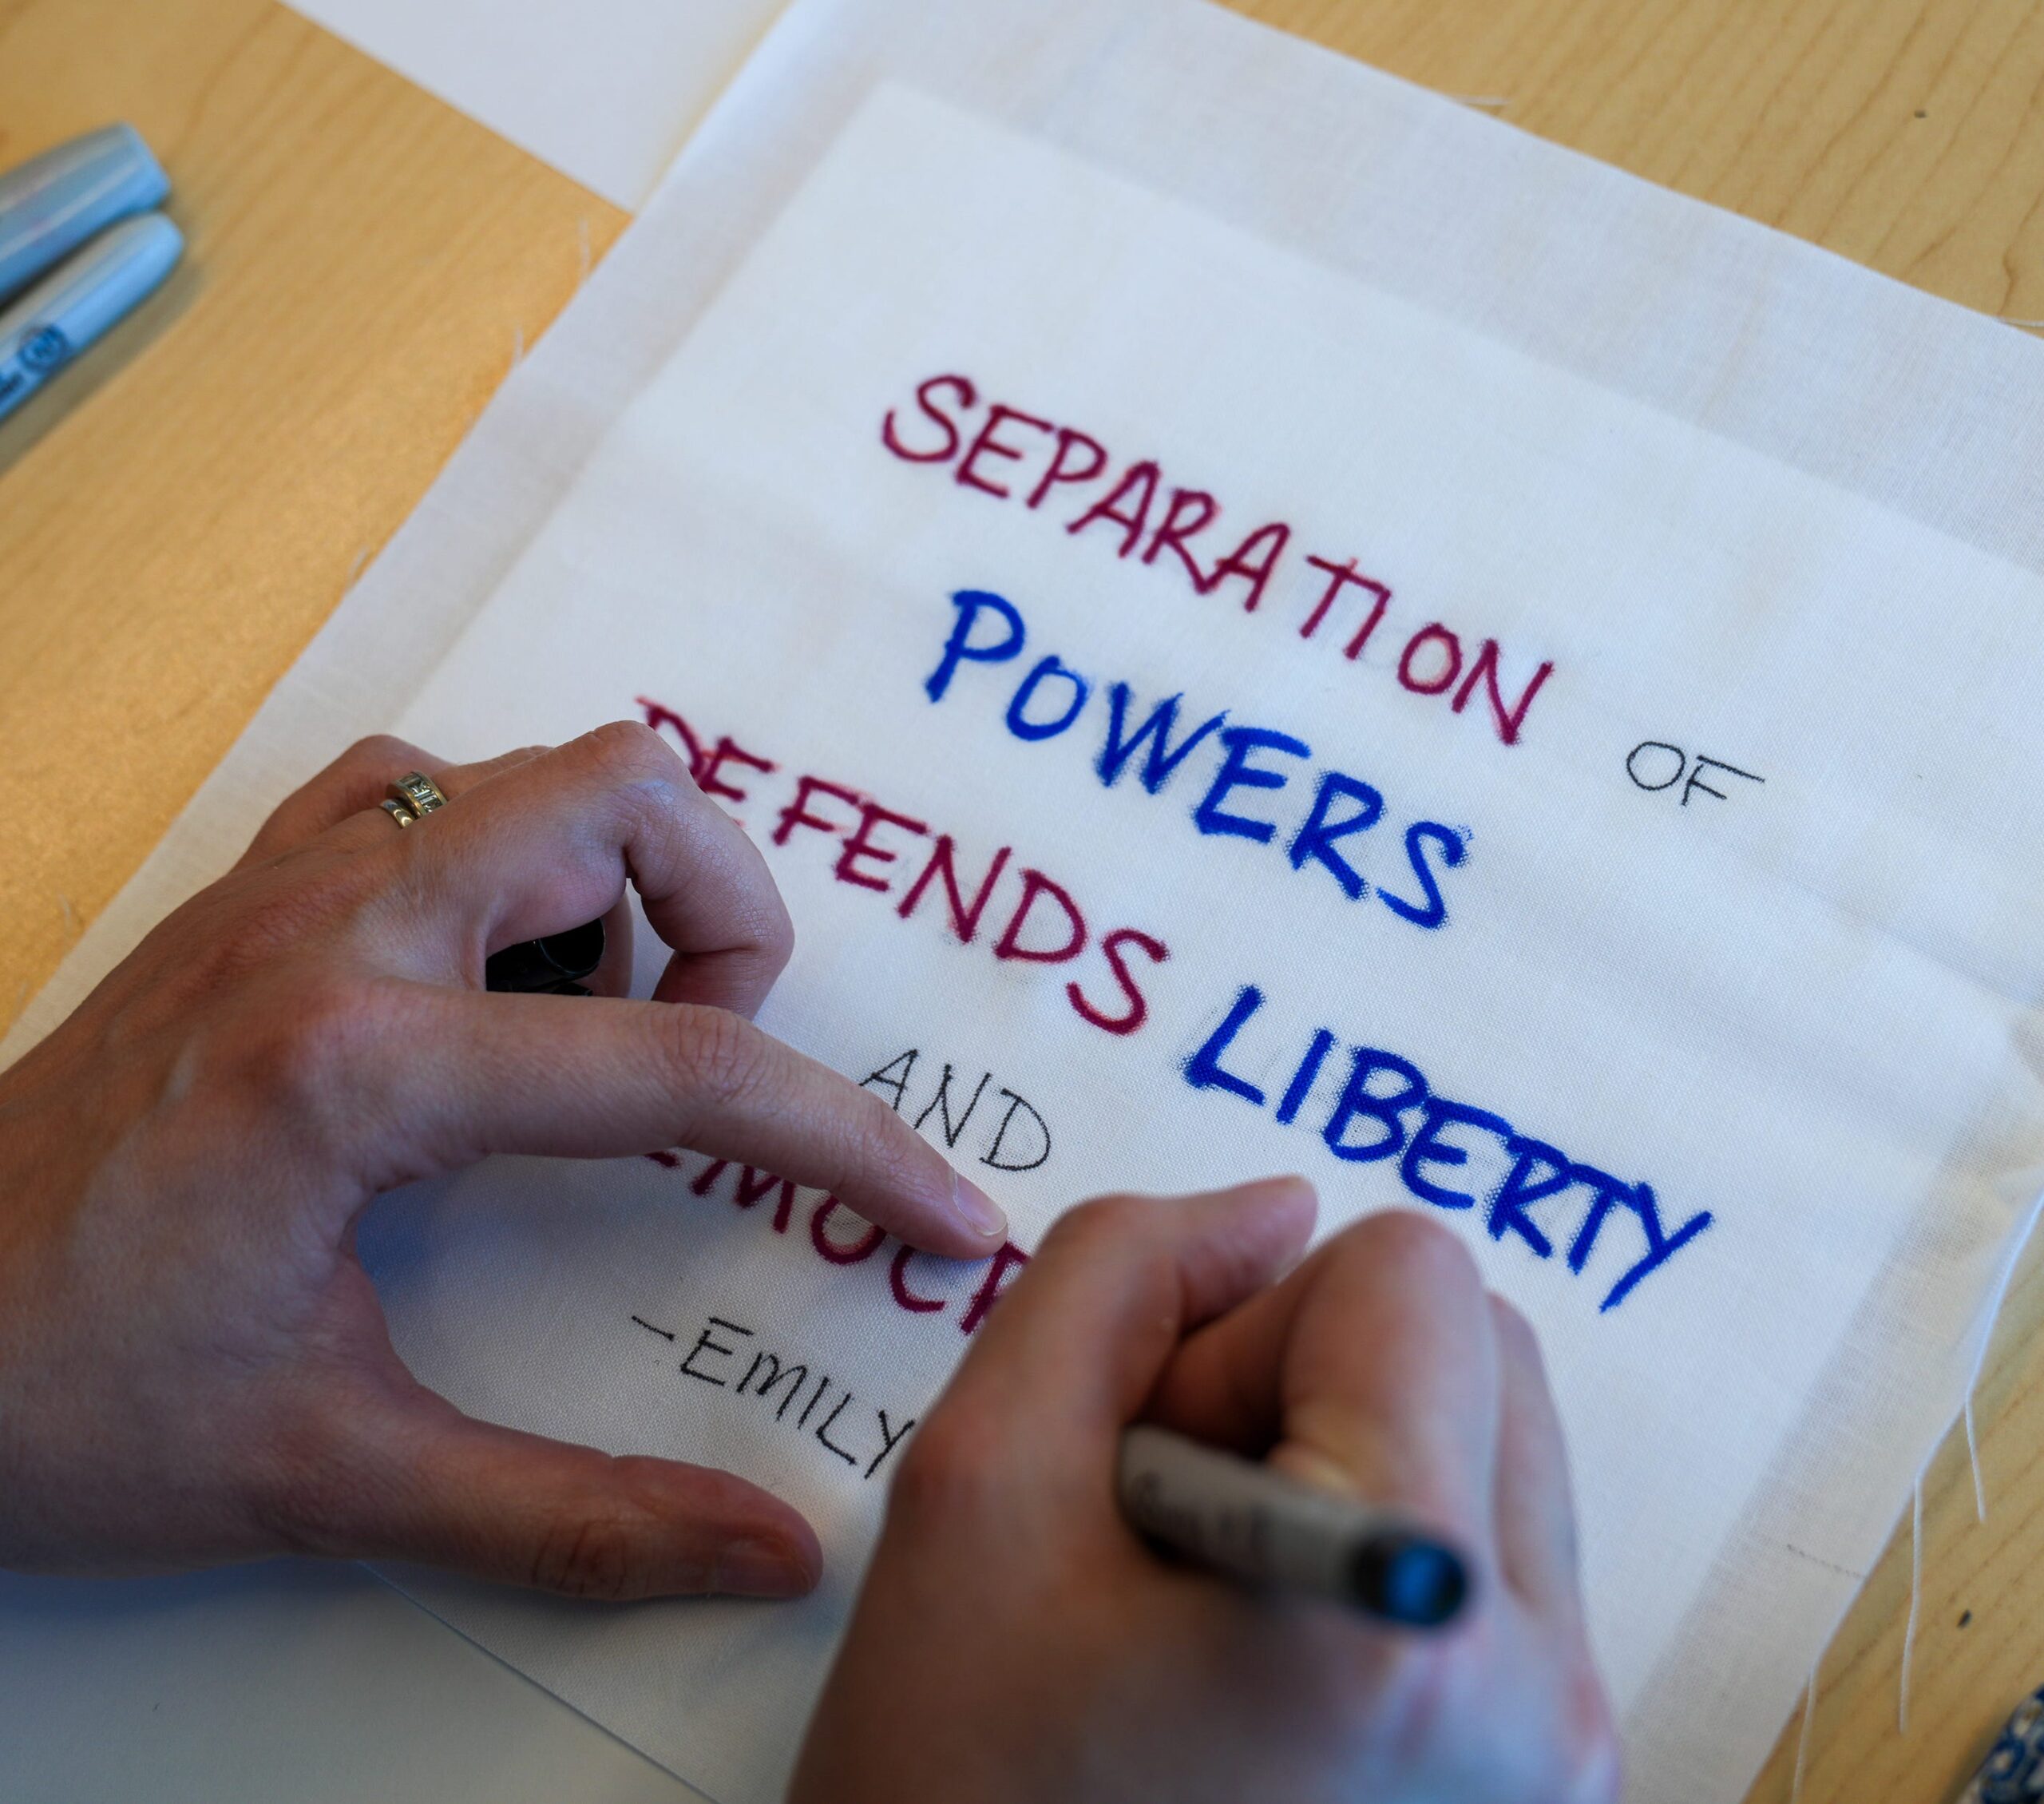 SEPARATION OF
POWERS
DEFENDS LIBERTY
AND
-EMILY